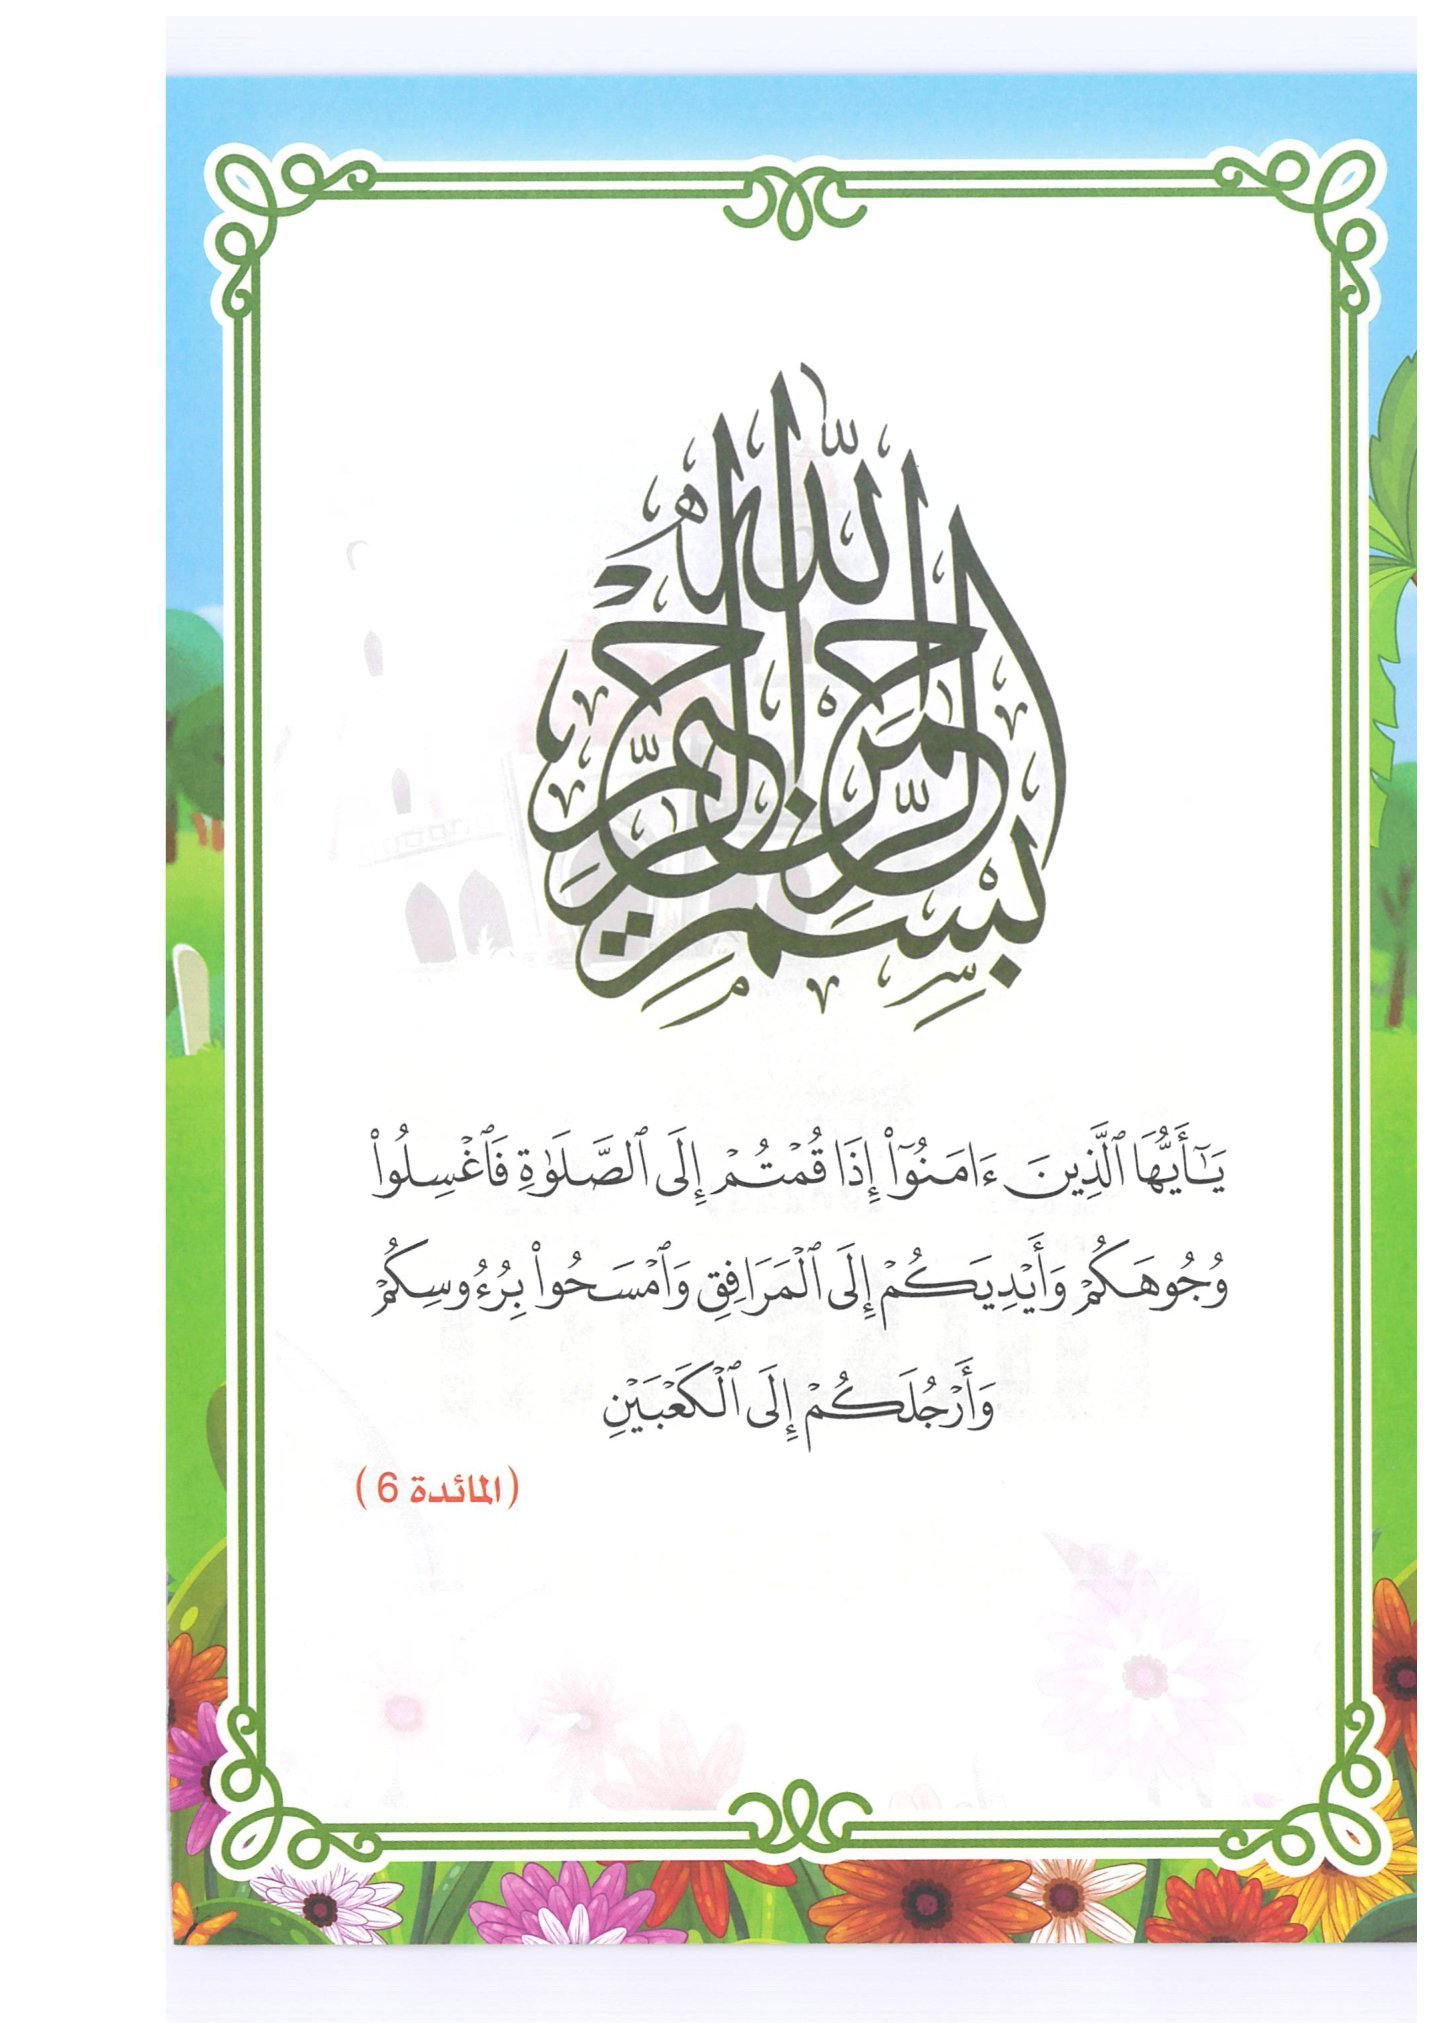 بِسْمِ اللَّهِ الرَّحْمَنِ الرَّحِيمِ
يَـٰٓأَيُّهَا ٱلَّذِينَ ءَامَنُوٓا۟ إِذَا قُمْتُمْ إِلَى ٱلصَّلَوٰةِ فَٱغْسِلُوا۟
وُجُوهَكُمْ وَأَيْدِيَكُمْ إِلَى ٱلْمَرَافِقِ وَٱمْسَحُوا۟ بِرُءُوسِكُمْ
وَأَرْجُلَكُمْ إِلَى ٱلْكَعْبَيْنِ
(المائدة 6)